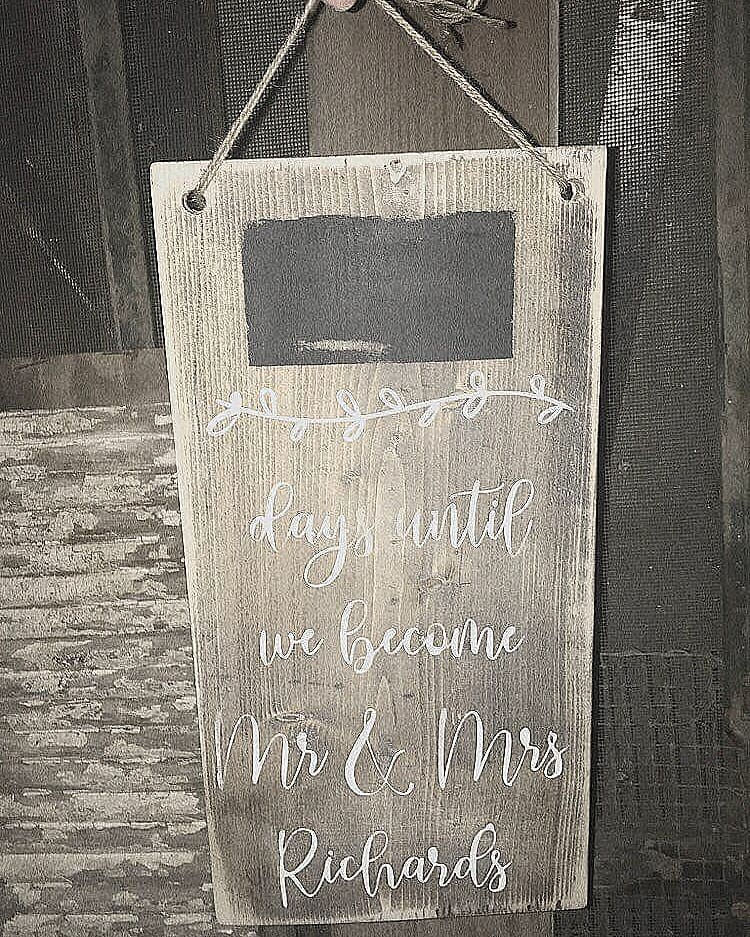 days until
we become
Mr & Mrs
Richards